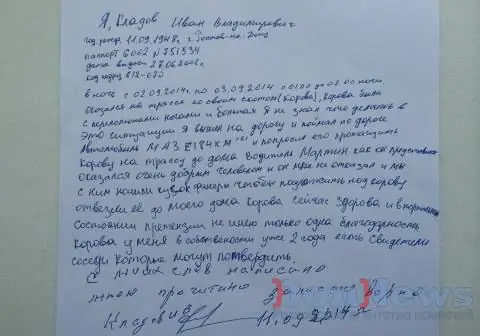 Я, Кладов Иван Владимирович
год. рожд. 11.09.1948 г. г. Ростов-на-Дону
паспорт 6002 N 751534
дата выдачи 27.06.2002 г.
код подр 612-020
в ночь с 02.09.2014г по 03.09.2014 с 01:00 до 02:00 ночи
оказался на трассе со своим скотом (корова), корова была
с переломаными ногами и больная я не знал что делать в
это ситуации я вышел на дорогу и поймал по дороге
Автомобиль МАЗ и попросил его протащить
корову на трассу до дома водитель Мартин как он представился
оказался очень добрым человеком и он мне не отказал и мы
с ним нашли кусок фанеры чтобы подложить под корову
отвезли её до моего дома корова сейчас здорова и в нормальном
состоянии претензии не имею только одна благодарность
корова у меня в собственности уже 2 года есть свидетели
соседи которые могут потвердить.
С моих слов написано
мною прочитано записано верно
Кладов И.В. 11.09.2014г.
DonNews